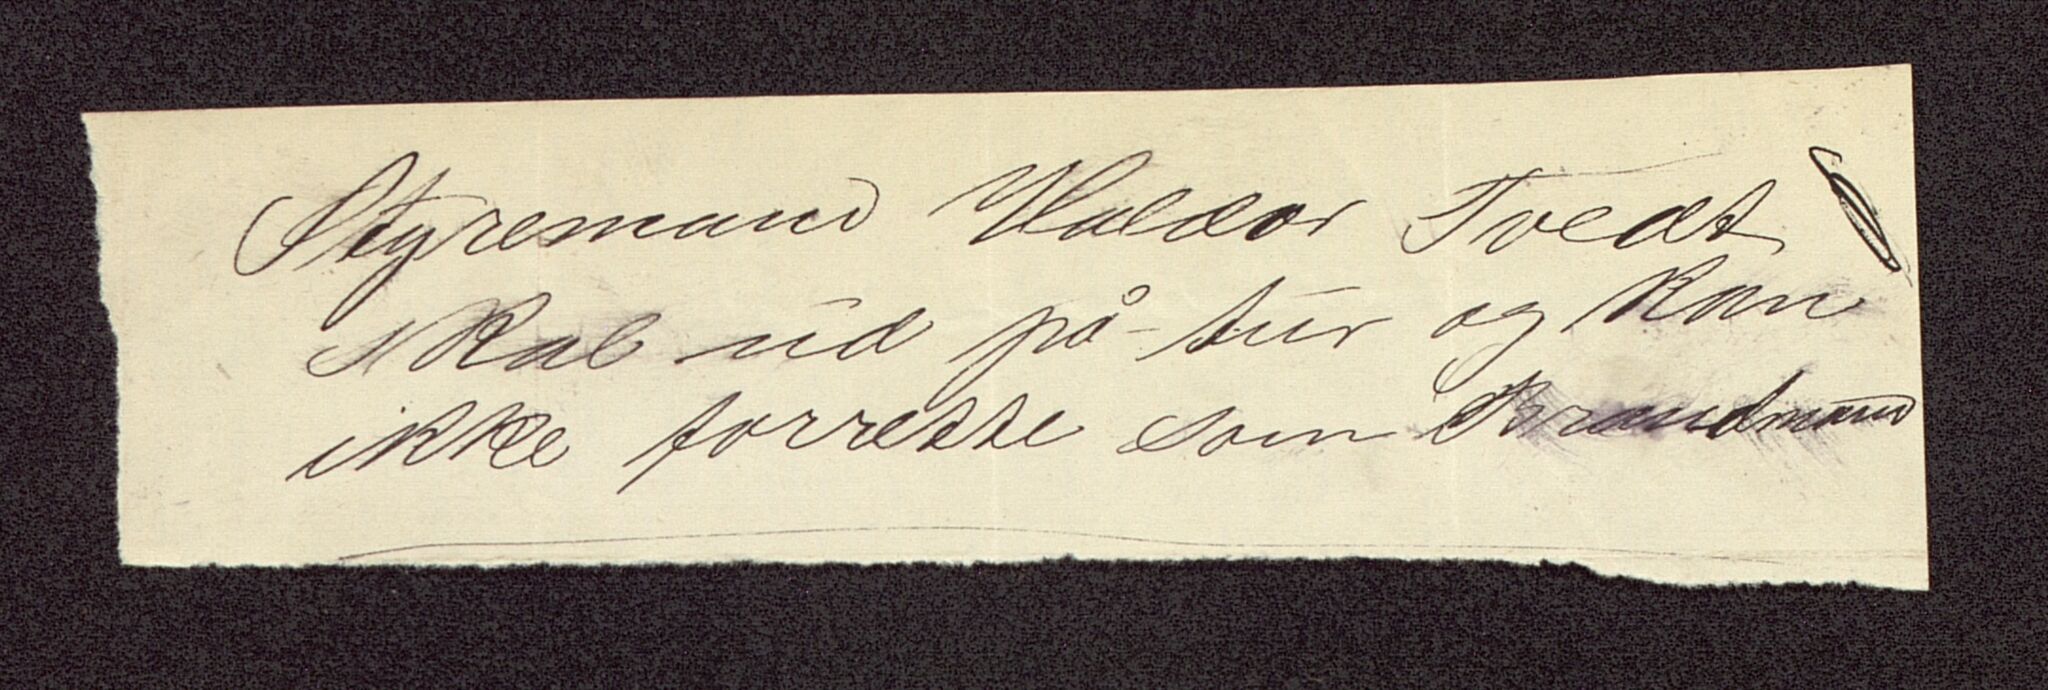 Styremand Haldor Tvedt
skal ud på tur og kan
ikke forrette som Brandmand